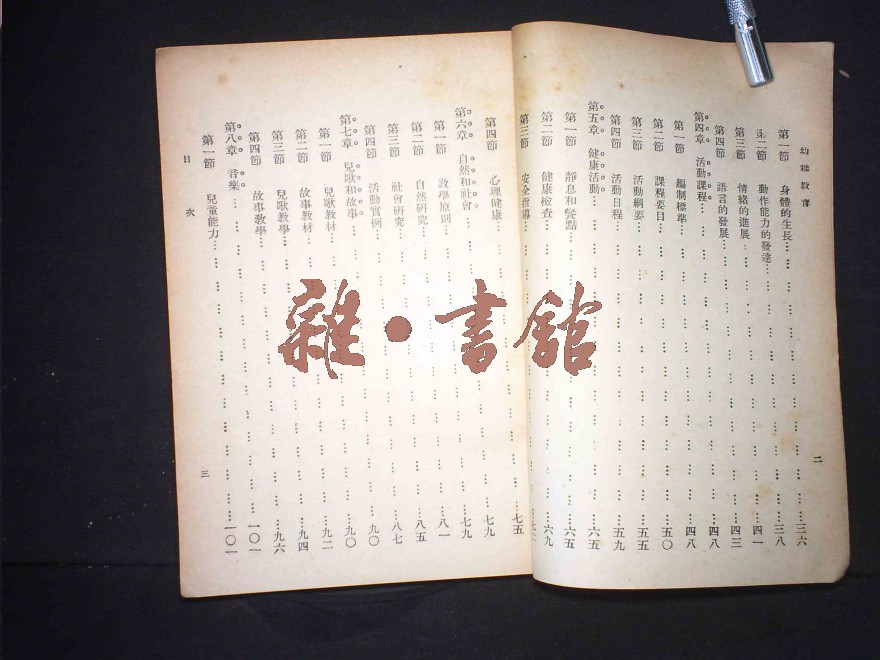 幼稚教育
第一節 身體的生長……三六
第二節 動作能力的發達……三八
第三節 情緒的進展……四一
第四節 語言的發展……四三
第四章 活動課程……四八
第一節 編制標準……四八
第二節 課程要目……五〇
第三節 活動綱要……五五
第四節 活動日程……五九
第五章 健康活動……六五
第一節 靜息和餐點……六五
第二節 健康檢查……六九
第三節 安全指導
二
第四節 心理健康……七五
第六章 自然和社會……七九
第一節 教學原則……七九
第二節 自然研究……八一
第三節 社會研究……八五
第四節 活動實例……八七
第七章 兒歌和故事……九〇
第一節 兒歌教材……九〇
第二節 故事教材……九二
第三節 兒歌教學……九四
第四節 故事教學……九六
第八章 音樂……一〇一
第一節 兒童能力……一〇一
目次
三
雜·書館